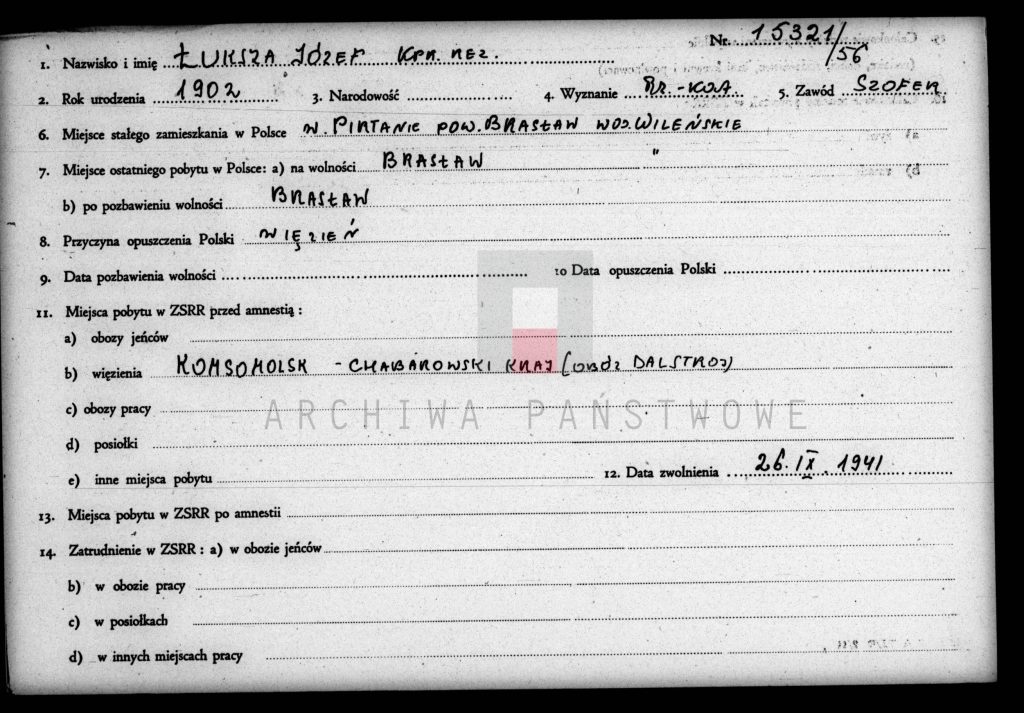 Nr. 15321/56
1. Nazwisko i imię ŁUKSZA JÓZEF KPR. REZ.
2. Rok urodzenia 1902 3. Narodowość 4. Wyznanie RZ.-KAT. 5. Zawód SZOFER
6. Miejsce stałego zamieszkania w Polsce W. PIRTANIE POW. BRASŁAW WOJ. WILEŃSKIE
7. Miejsce ostatniego pobytu w Polsce: a) na wolności BRASŁAW "
b) po pozbawieniu wolności BRASŁAW
8. Przyczyna opuszczenia Polski WIĘZIEŃ
9. Data pozbawienia wolności 10 Data opuszczenia Polski
11. Miejsca pobytu w ZSRR przed amnestią :
a) obozy jeńców
b) więzienia KOMSOMOLSK - CHABAROWSKI KRAJ (OBÓZ DALSTROJ)
ARCHIWA PAŃSTWOWE
c) obozy pracy
d) posiołki
e) inne miejsca pobytu 12. Data zwolnienia 26.IX.1941
13. Miejsca pobytu w ZSRR po amnestii
14. Zatrudnienie w ZSRR : a) w obozie jeńców
b) w obozie pracy
c) w posiołkach
d) w innych miejscach pracy